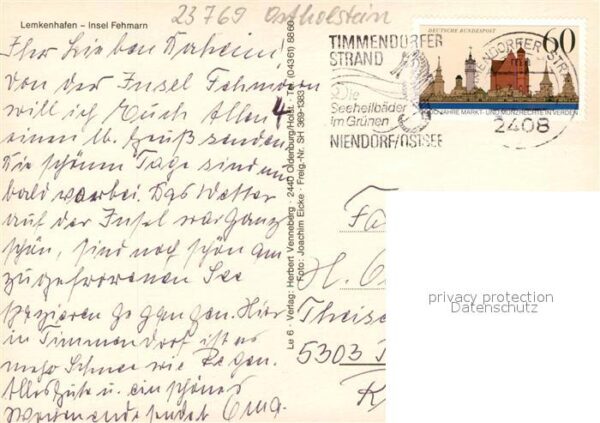 23769 Ostholstein
Lemkenhafen – Insel Fehmarn
Ihr Lieben Daheim!
Von der Insel Fehmarn
will ich Euch Allen 4
einen lb. Gruß senden.
Die schönen Tage sind nun
bald vorbei. Das Wetter
auf der Insel war ganz
schön, sind noch schön am
zugefrorenen See
spazieren gegangen. Hier
in Timmendorf ist es
mehr Schnee wie Regen.
Alles Gute u. ein schönes
Wochenende sendet Oma.
Le 6 · Verlag: Herbert Venneberg · 2440 Oldenburg/Holst. · Tel. (04361) 8860
Foto: Joachim Eicke · Freig.-Nr. SH 369-1383
TIMMENDORFER
STRAND
Die
Seeheilbäder
im Grünen
NIENDORF/OSTSEE
2408
DEUTSCHE BUNDESPOST
60
JAHRE MARKT- UND MÜNZRECHTE IN VERDEN
Fa
H.
Theise
5303
privacy protection
Datenschutz